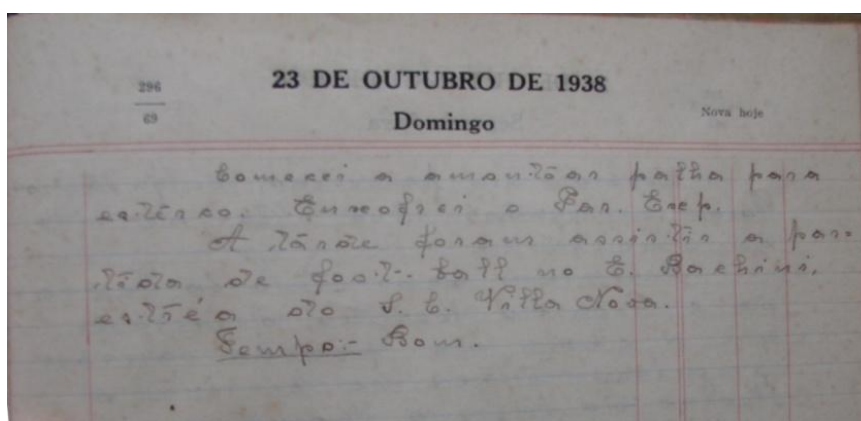 296
69
23 DE OUTUBRO DE 1938
Domingo
Nova hoje
Comecei a amontôar palha para
estêrco. Enxofrei o Par.
A tarde foram assistir a par-
tida de foot-ball no E. Bachini,
estréa do S. C. Villa Nova.
Tempo:- Bom.